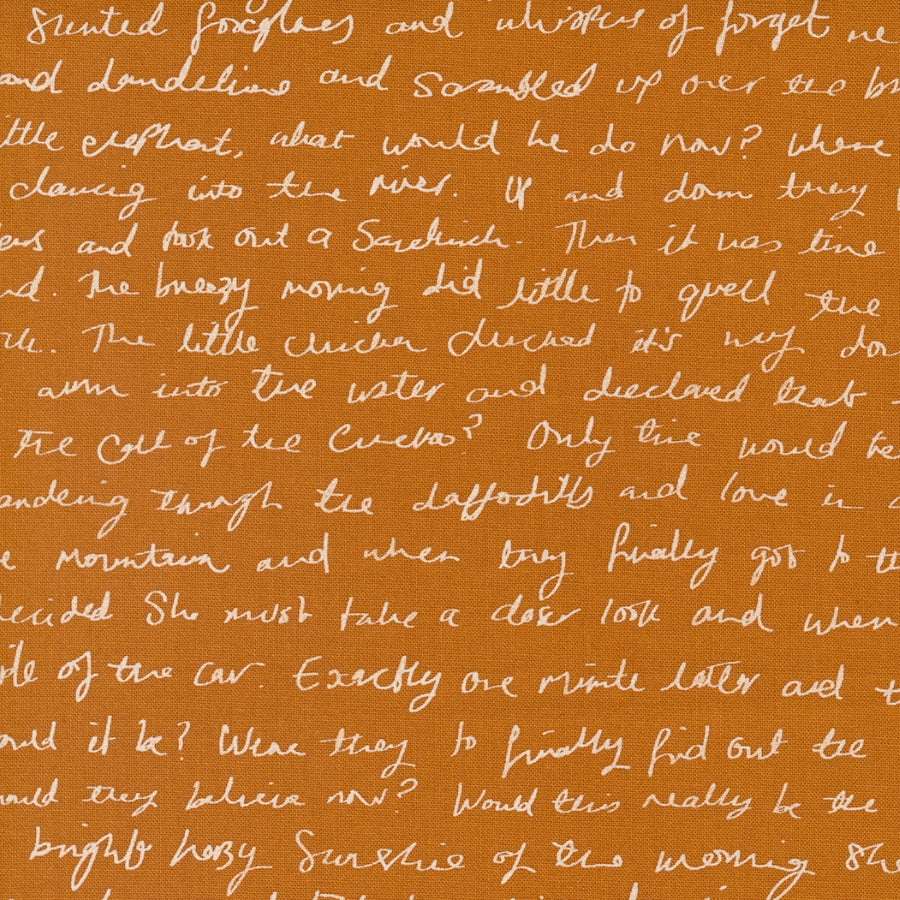 Stunted foxgloves and whispers of forget me
and dandelions and Scrambled up over the
little elephant, what would he do now? Where
dancing into the river. Up and down they
and took out a Sandwich. Then it was time
The breezy morning did little to quell the
The little chicken clucked it's way
into the water and declared that
The Call of the Cuckoo? Only time would
through the daffodils and love in
mountain and when they finally got to
decided She must take a closer look and when
of the car. Exactly one minute later and
would it be? Were they to finally find out the
would they believe now? Would this really be the
bright hazy Sunshine of the morning She